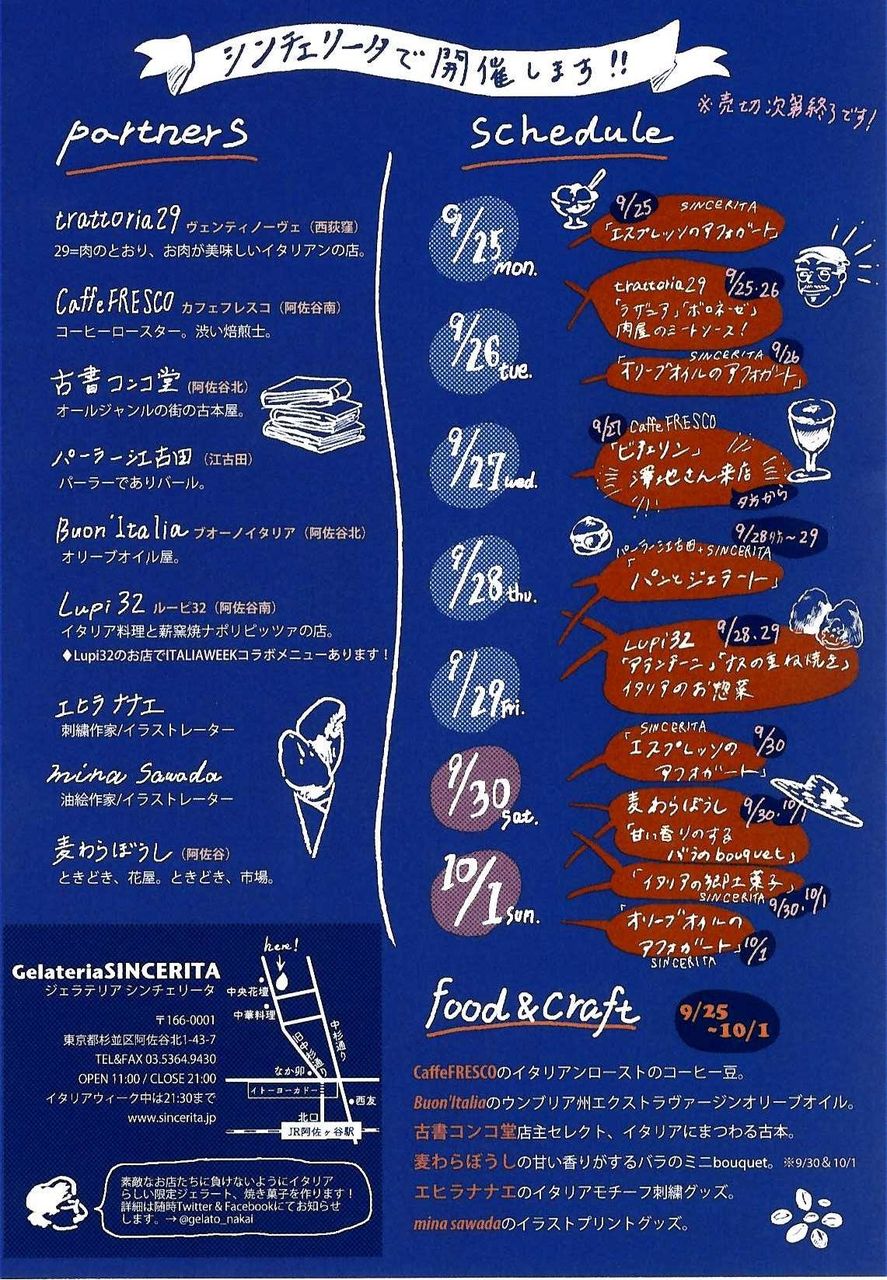 シンチェリータで開催します!!
※売切次第終了です!
partners
trattoria29 ヴェンティノーヴェ（西荻窪）
29=肉のとおり、お肉が美味しいイタリアンの店。
CaffeFRESCO カフェフレスコ（阿佐谷南）
コーヒーロースター。渋い焙煎士。
古書コンコ堂（阿佐谷北）
オールジャンルの街の古本屋。
パーラー江古田（江古田）
パーラーでありバール。
Buon'Italia ブオーノイタリア（阿佐谷北）
オリーブオイル屋。
Lupi32 ルーピ32（阿佐谷南）
イタリア料理と薪窯焼ナポリピッツァの店。
♦Lupi32のお店でITALIAWEEKコラボメニューあります！
エヒラナナエ
刺繍作家/イラストレーター
mina sawada
油絵作家/イラストレーター
麦わらぼうし（阿佐谷）
ときどき、花屋。ときどき、市場。
schedule
9/25 mon.
9/26 tue.
9/27 wed.
9/28 thu.
9/29 Fri.
9/30 Sat.
10/1 Sun.
9/25 SINCERITA
「エスプレッソのアフォガート」
trattoria29 9/25・26
「ラザニア」「ボロネーゼ」
肉屋のミートソース！
SINCERITA 9/26
「オリーブオイルのアフォガート」
9/27 Caffe FRESCO
「ビチェリン」
澤地さん来店
夕方から
9/28夕方〜29
パーラー江古田・SINCERITA
「パンとジェラート」
Lupi32 9/28.29
「アランチーニ」「ナスの重ね焼き」
イタリアのお惣菜
SINCERITA 9/30
「エスプレッソの
アフォガート」
麦わらぼうし 9/30・10/1
「甘い香りのする
バラのbouquet」
「イタリアの郷土菓子」
SINCERITA 9/30・10/1
「オリーブオイルの
アフォガート」10/1
SINCERITA
GelateriaSINCERITA
ジェラテリア シンチェリータ
〒166-0001
東京都杉並区阿佐谷北1-43-7
TEL&FAX 03.5364.9430
OPEN 11:00 / CLOSE 21:00
イタリアウィーク中は21:30まで
www.sincerita.jp
here!
中央花壇
中華料理
中杉通り
旧中杉通り
なか卯
イトーヨーカドー
西友
北口
JR阿佐ヶ谷駅
素敵なお店たちに負けないようにイタリア
らしい限定ジェラート、焼き菓子を作ります！
詳細は随時Twitter & Facebookにてお知らせ
します。→ @gelato_nakai
food & craft
9/25
~10/1
CaffeFRESCOのイタリアンローストのコーヒー豆。
Buon'Italiaのウンブリア州エクストラヴァージンオリーブオイル。
古書コンコ堂店主セレクト、イタリアにまつわる古本。
麦わらぼうしの甘い香りがするバラのミニbouquet。※9/30＆10/1
エヒラナナエのイタリアモチーフ刺繍グッズ。
mina sawadaのイラストプリントグッズ。